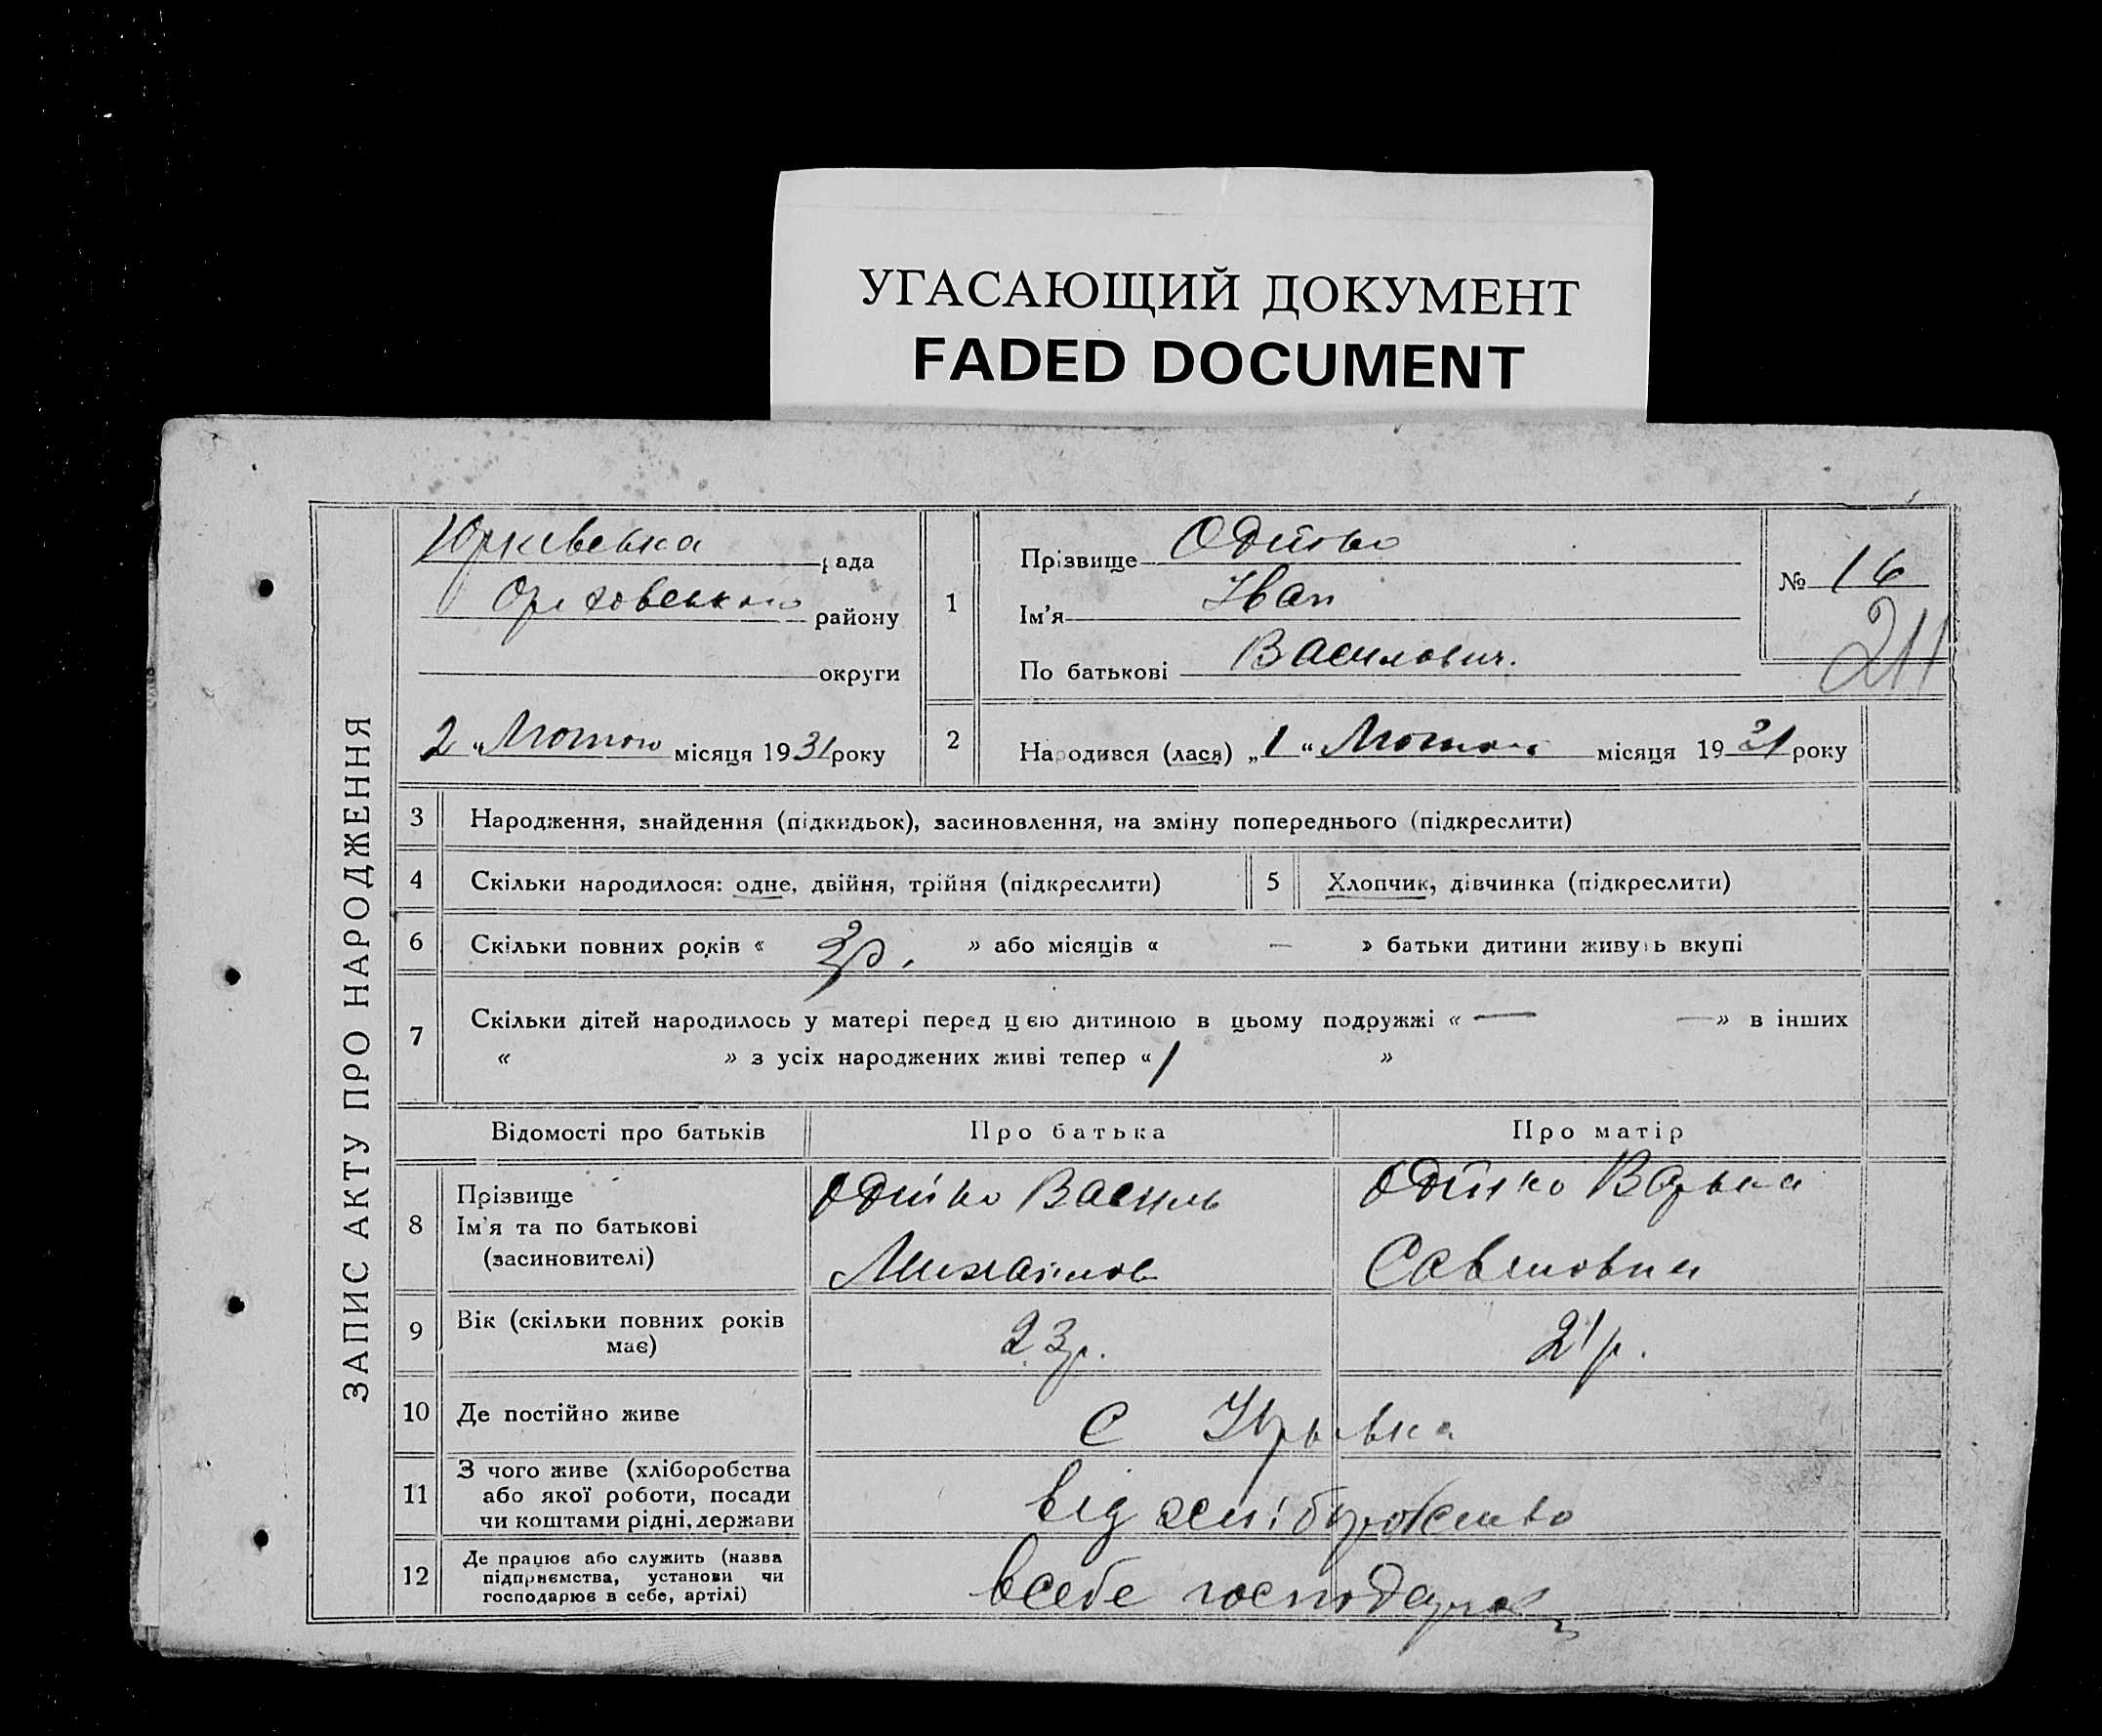 УГАСАЮЩИЙ ДОКУМЕНТ
FADED DOCUMENT
ЗАПИС АКТУ ПРО НАРОДЖЕННЯ
Юрківська рада
Оріхівського району
округи
2 " Лютого місяця 1931 року
1
Прізвище Одійко
Ім'я Іван
По батькові Василович.
№ 16
211
2
Народився (лася) „1“ Лютого місяця 1931 року
3 Народження, знайдення (підкидьок), засиновлення, на зміну попереднього (підкреслити)
4 Скільки народилося: одне, двійня, трійня (підкреслити)
5 Хлопчик, дівчинка (підкреслити)
6 Скільки повних років « р. » або місяців « — » батьки дитини живуть вкупі
7 Скільки дітей народилось у матері перед цією дитиною в цьому подружжі « — — » в інших
« » з усіх народжених живі тепер « 1 »
Відомості про батьків
Про батька
Про матір
8
Прізвище
Ім'я та по батькові
(засиновителі)
Одійко Василь
Михайлов
Одійко Варька
Савеловна
9 Вік (скільки повних років
має)
23р.
21р.
10 Де постійно живе
с Юрківка
11 З чого живе (хліборобства
або якої роботи, посади
чи коштами рідні, держави
від хліборобство
12 Де працює або служить (назва
підприємства, установи чи
господарює в себе, артілі)
всебе господарст